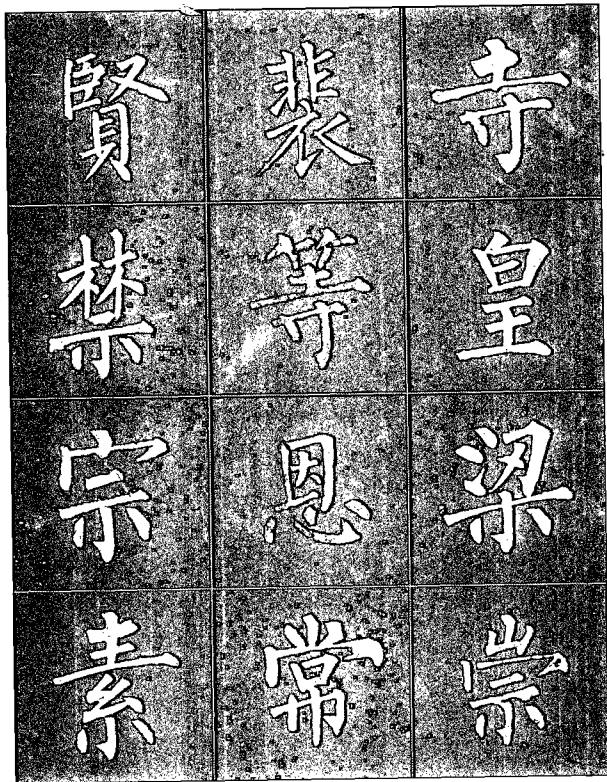 寺皇梁崇
裴等恩常
賢禁宗素